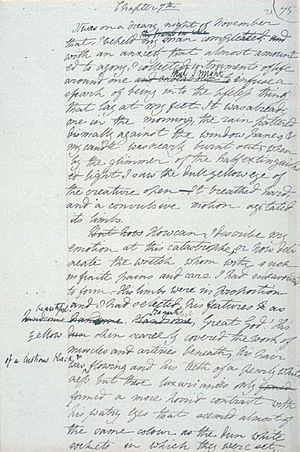 Chapter 7th
It was on a dreary night of November
that I beheld my man completed and
with an anxiety that almost amount
ed to agony, I collected instruments of life
around me and that I might infuse a
spark of being into the lifeless thing
that lay at my feet. It was already
one in the morning, the rain pattered
dismally against the window panes &
my candle was nearly burnt out, when
by the glimmer of the half extinguish
ed light I saw the dull yellow eye of
the creature open. It breathed hard
and a convulsive motion agitated
its limbs.
But how How can I describe my
emotion at this catastrophe; or how deli
neate the wretch whom with such
infinite pains and care I had endeavoured
to form. His limbs were in proportion
and I had selected his features as
beautiful
handsome Handsome Great God! His
yellow skin scarcely covered the work of
muscles and arteries beneath; his hair
of a lustrous black
was flowing and his teeth of a pearly white
ness but these luxuriances only
formed a more horrid contrast with
his watry eyes that seemed almost of
the same colour as the dun white
sockets in which they were set,